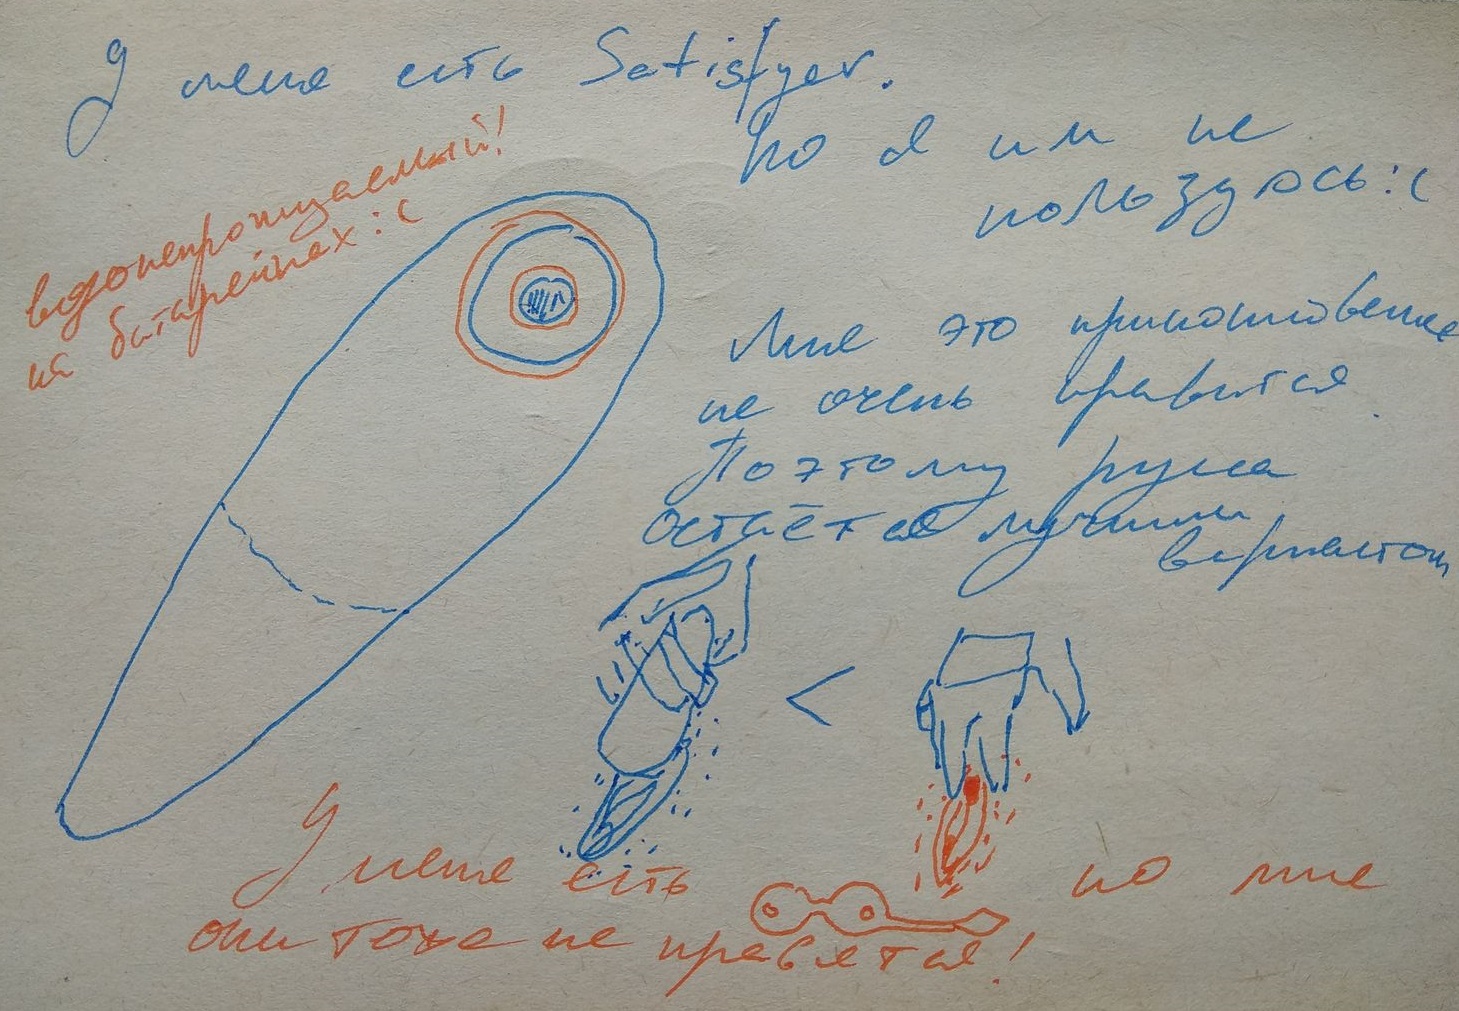 У меня есть Satisfyer.
но я им не
пользуюсь:(
водонепроницаемый!
на батарейках:(
Мне это прикосновение
не очень нравится.
Поэтому рука
остаётся лучшим
вариантом
<
У меня есть но мне
они тоже не нравятся!